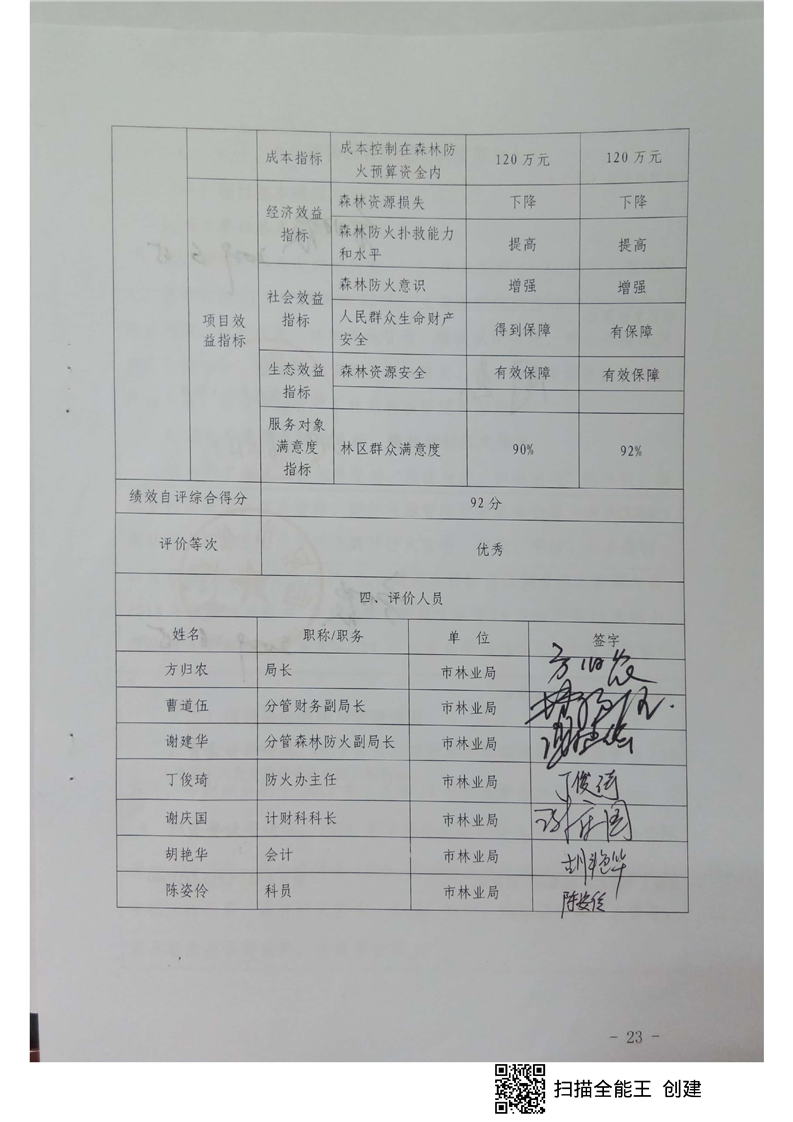 成本指标 成本控制在森林防火预算资金内 120万元 120万元
项目效益指标
经济效益指标 森林资源损失 下降 下降
森林防火扑救能力和水平 提高 提高
社会效益指标 森林防火意识 增强 增强
人民群众生命财产安全 得到保障 有保障
生态效益指标 森林资源安全 有效保障 有效保障
服务对象满意度指标 林区群众满意度 90% 92%
绩效自评综合得分 92分
评价等次 优秀
四、评价人员
姓名 职称/职务 单 位 签字
方归农 局长 市林业局 方归农
曹道伍 分管财务副局长 市林业局
谢建华 分管森林防火副局长 市林业局 谢建华
丁俊琦 防火办主任 市林业局 丁俊琦
谢庆国 计财科科长 市林业局 谢庆国
胡艳华 会计 市林业局 胡艳华
陈姿伶 科员 市林业局 陈姿伶
- 23 -
扫描全能王 创建